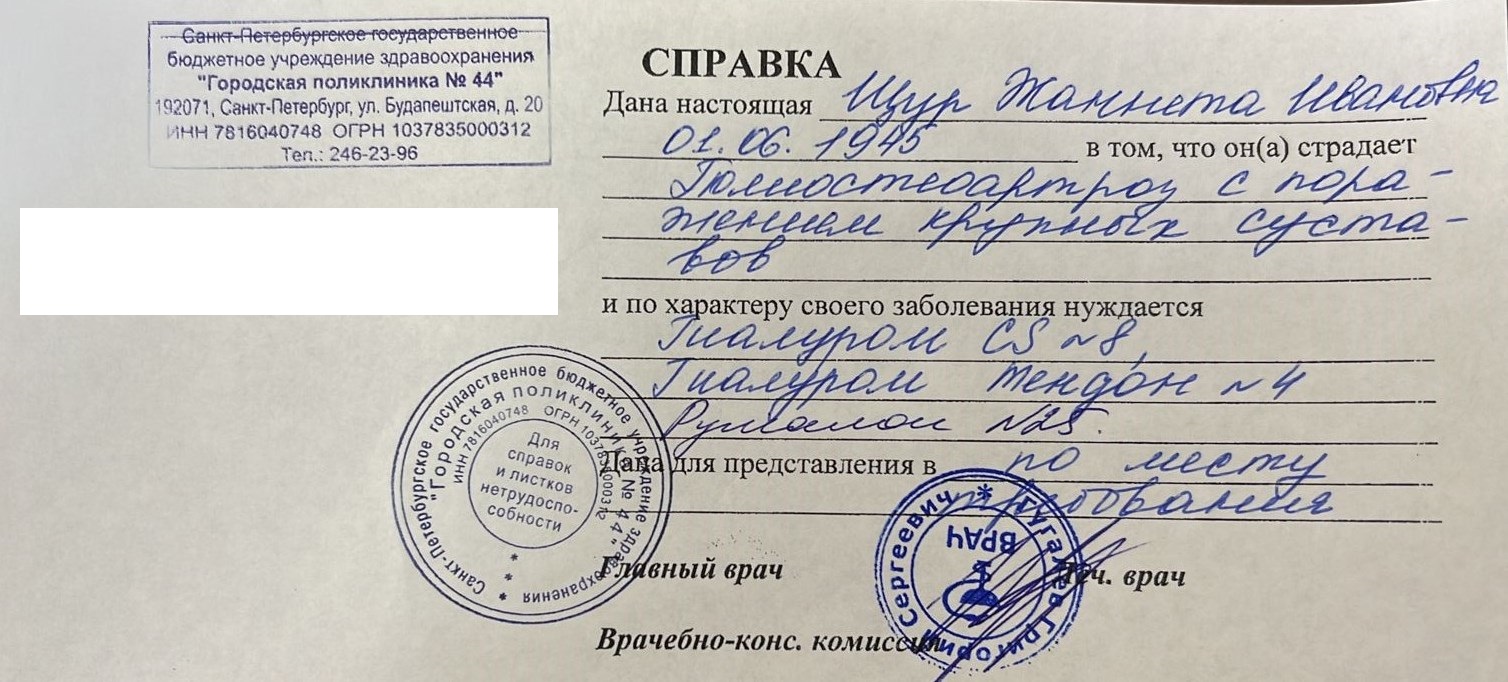 Санкт-Петербургское государственное
бюджетное учреждение здравоохранения
"Городская поликлиника № 44"
192071, Санкт-Петербург, ул. Будапештская, д. 20
ИНН 7816040748 ОГРН 1037835000312
Тел.: 246-23-96
СПРАВКА
Дана настоящая Щур Жаннета Ивановна
01.06.1945 в том, что он(а) страдает
Полиостеоартроз с пора-
жением крупных суста-
вов
и по характеру своего заболевания нуждается
Гиалуром CS №8,
Гиалуром тендон №4
Румалон №25.
Дана для представления в по месту
требования
Санкт-Петербургское государственное бюджетное учреждение здравоохранения
"Городская поликлиника № 44"
ИНН 7816040748 ОГРН 1037835000312
Для
справок
и листков
нетрудоспо-
собности
Главный врач
Леч. врач
ВРАЧ
Григорий Сергеевич
Врачебно-конс. комиссия